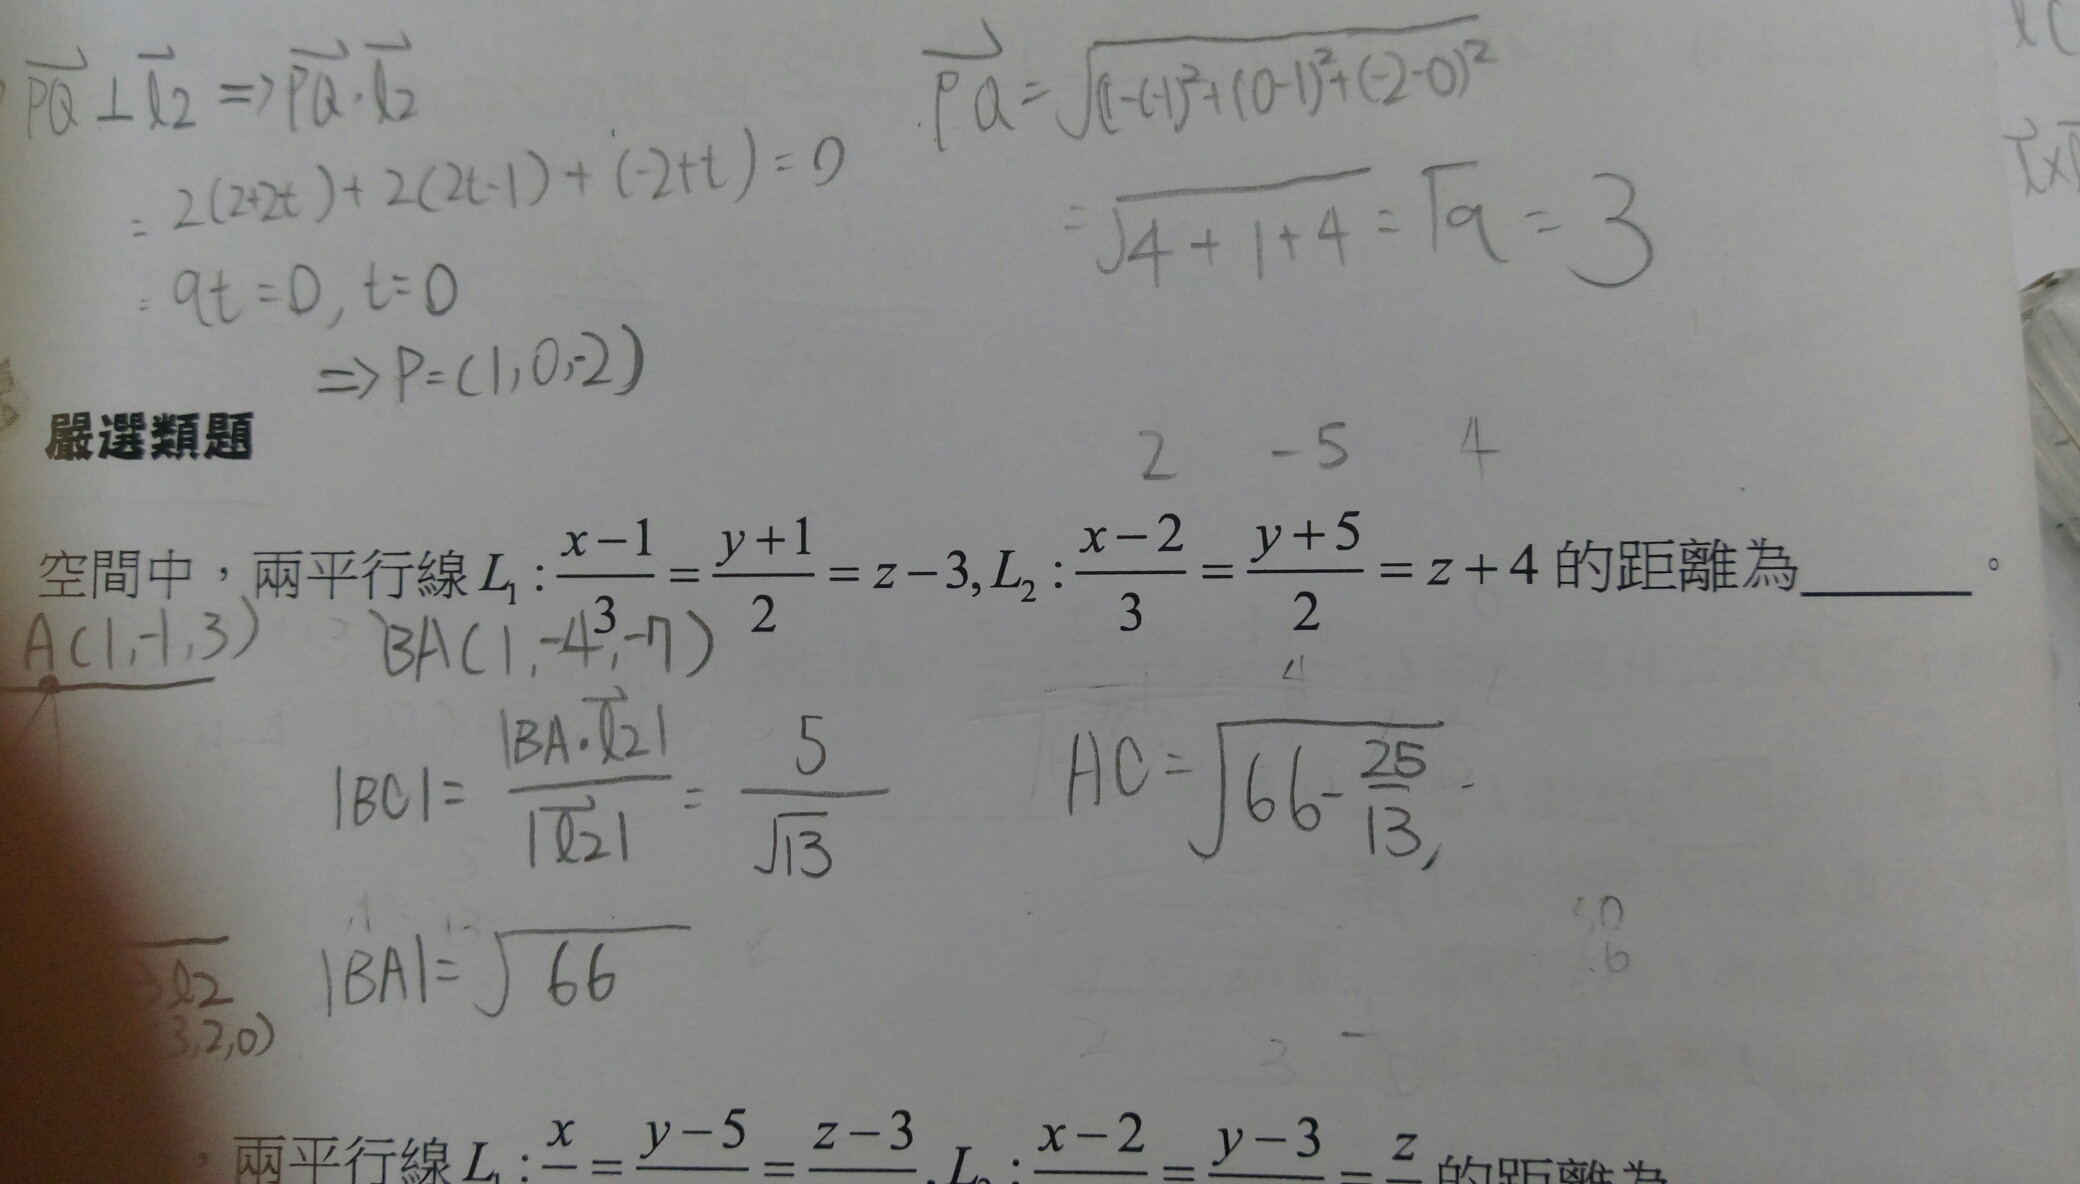 PQ⊥l2 => PQ·l2
= 2(2+2t)+2(2t-1)+(-2+t)=0
= 9t=0, t=0
=> P=(1,0,-2)
PQ=√(1-(-1)²+(0-1)²+(-2-0)²
=√4+1+4=√9=3
嚴選類題
2 -5 4
空間中，兩平行線L₁:(x-1)/3=(y+1)/2=z-3,L₂:(x-2)/3=(y+5)/2=z+4的距離為______。
A(1,-1,3) BA(1,-4,-7)
4
|BC|=|BA·l2|/|l2|=5/√13
AC=√66-25/13
|BA|=√66
l2
3,2,0)
，兩平行線L₁:x=y-5=z-3,L₂:x-2=y-3=z的距離為